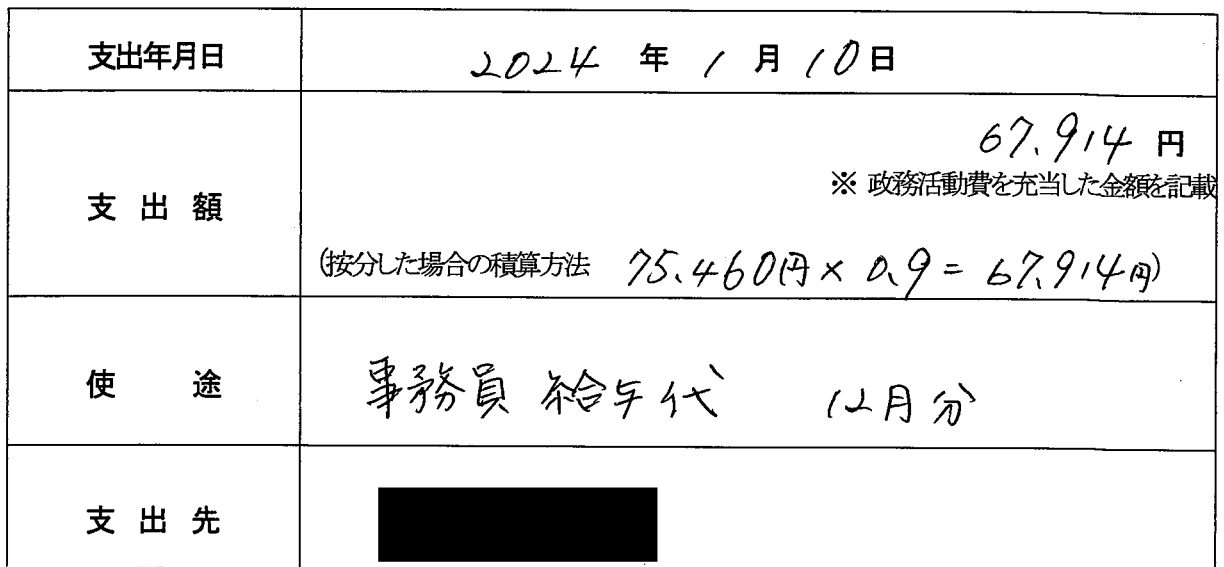 支出年月日 2024 年 1 月 10 日
67.914 円
※ 政務活動費を充当した金額を記載
支 出 額
(按分した場合の積算方法 75.460円 × 0.9 = 67.914円)
使 途 事務員 給与代 12月分
支 出 先